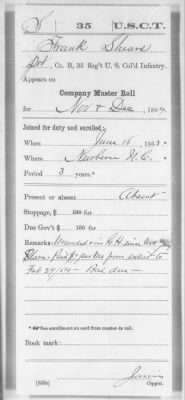 S | 35 | U.S.C.T.
Frank Shears
Pvt., Co. B, 35 Reg't U. S. Col'd Infantry.
Appears on
Company Muster Roll
for Nov & Dec, 1864.
Joined for duty and enrolled:
When June 15, 1863.
Where Newbern N.C.
Period 3 years.*
Present or absent Absent
Stoppage, $ 100 for
Due Gov't $ 100 for
Remarks: Wounded in since Nov
from enlist to
Feb 29/64 - due -
* See enrollment on card from muster-in roll.
Book mark:
(858c)
Copyist.